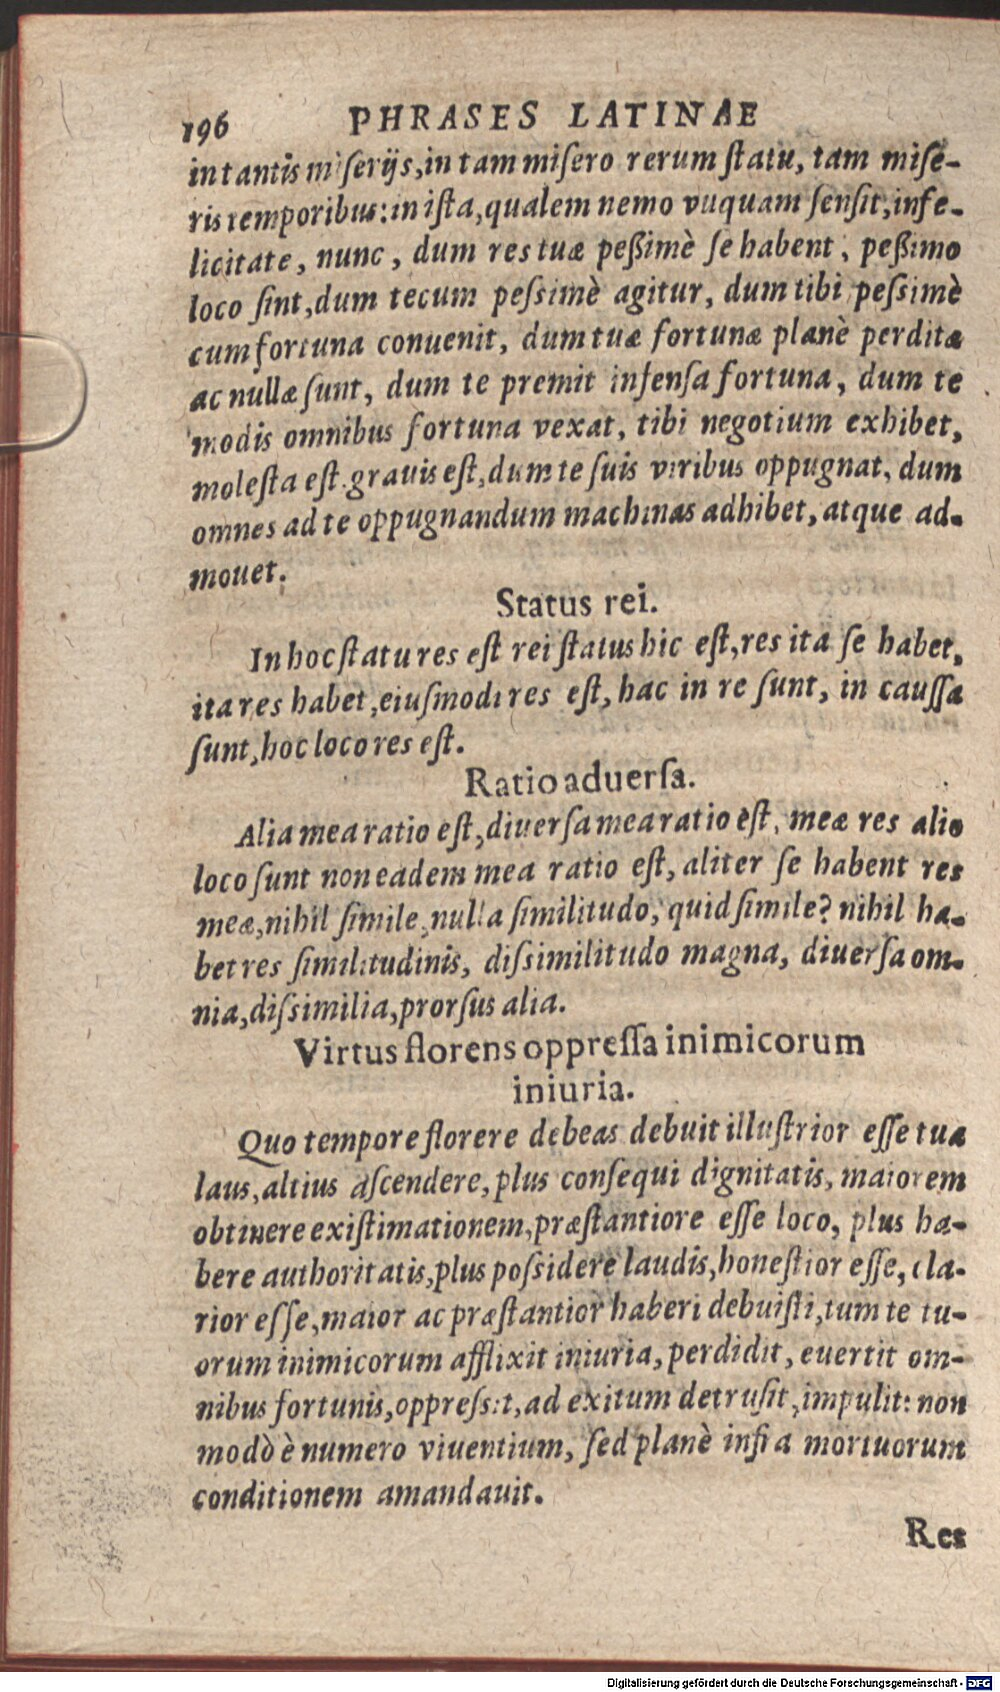 196 PHRASES LATINAE
in tantis miſerijs, in tam miſero rerum ſtatu, tam miſe-
ris temporibus: in iſta, qualem nemo vnquam ſenſit, infe-
licitate, nunc, dum res tuæ peßimè ſe habent, peßimo
loco ſint, dum tecum peſsimè agitur, dum tibi peſsimè
cum fortuna conuenit, dum tuæ fortunæ planè perditæ
ac nullæ ſunt, dum te premit infenſa fortuna, dum te
modis omnibus fortuna vexat, tibi negotium exhibet,
moleſta eſt. grauis eſt, dum te ſuis viribus oppugnat, dum
omnes ad te oppugnandum machinas adhibet, atque ad-
mouet.
Status rei.
In hoc ſtatu res eſt rei ſtatus hic eſt, res ita ſe habet,
ita res habet, eiuſmodi res eſt, hac in re ſunt, in cauſſa
ſunt, hoc loco res eſt.
Ratio aduerſa.
Alia mea ratio eſt, diuerſa mea ratio eſt, meæ res alio
loco ſunt non eadem mea ratio eſt, aliter ſe habent res
meæ, nihil ſimile, nulla ſimilitudo, quid ſimile? nihil ha-
bet res ſimilitudinis, diſsimilitudo magna, diuerſa om-
nia, diſsimilia, prorſus alia.
Virtus florens oppreſſa inimicorum
iniuria.
Quo tempore florere debeas debuit illuſtrior eſſe tua
laus, altius aſcendere, plus conſequi dignitatis, maiorem
obtinere exiſtimationem, præſtantiore eſſe loco, plus ha-
bere authoritatis, plus poſsidere laudis, honeſtior eſſe, cla-
rior eſſe, maior ac præſtantior haberi debuiſti, tum te tu-
orum inimicorum afflixit iniuria, perdidit, euertit om-
nibus fortunis, oppreſsit, ad exitum detruſit, impulit: non
modò è numero viuentium, ſed planè infra mortuorum
conditionem amandauit.
Res
Digitalisierung gefördert durch die Deutsche Forschungsgemeinschaft - DFG